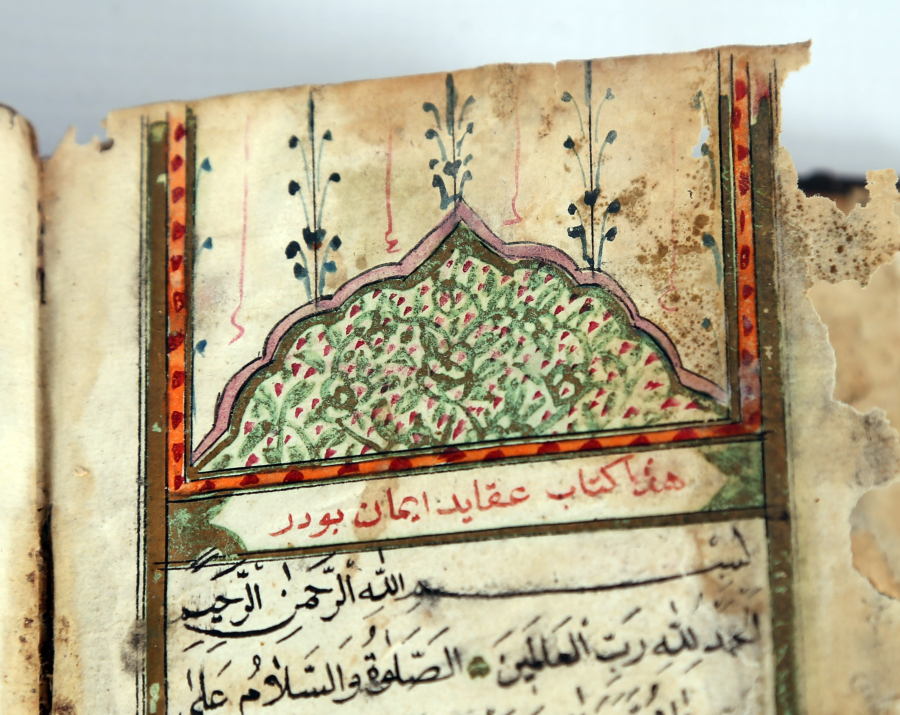 هذا كتاب عقايد ايمان بودر
بسم الله الرَّحمٰنِ الرَّحيمِ
الحمد للهِ رَبِّ العَالَمِينَ الصَّلٰوةُ وَالسَّلَامُ عَلٰى